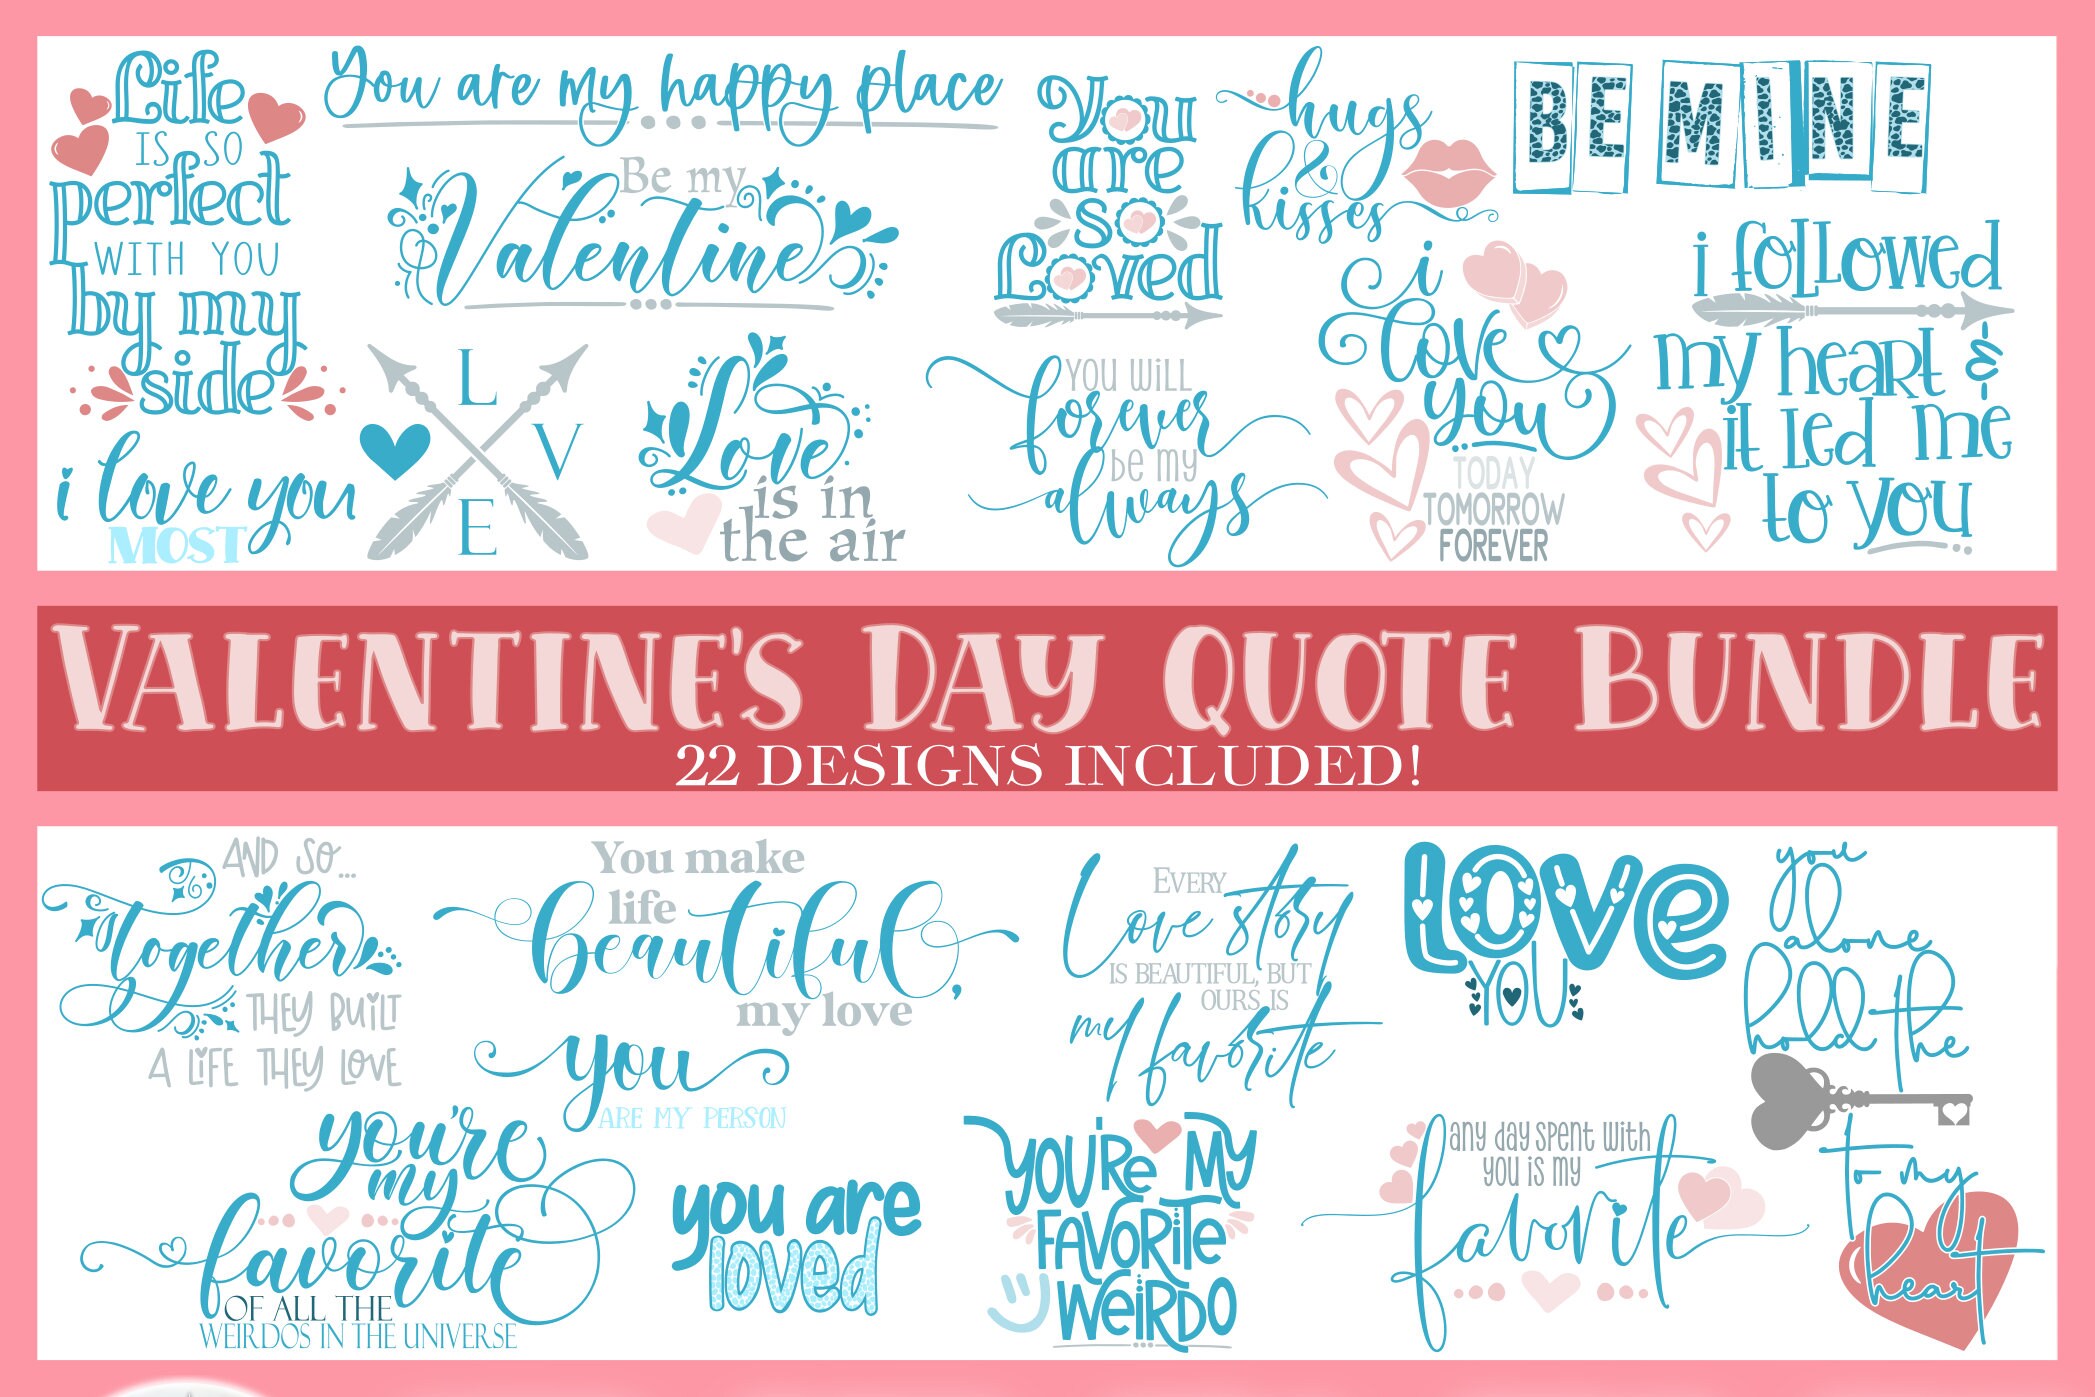 Life
IS SO
perfect
WITH YOU
by my
side
You are my happy place
Be my
Valentine
You
are
so
Loved
hugs
&
kisses
BE MINE
i love you
MOST
L
V
E
Love
is in
the air
YOU WILL
forever
be my
always
i
love
you
TODAY
TOMORROW
FOREVER
i followed
my heart &
it led me
to you
VALENTINE'S DAY QUOTE BUNDLE
22 DESIGNS INCLUDED!
AND SO...
together
THEY BUILT
A LIFE THEY LOVE
You make
life
beautiful,
my love
you
ARE MY PERSON
EVERY
Love story
IS BEAUTIFUL, BUT
OURS IS
my favorite
LOVe
YOU
you
alone
hold the
to my
heart
you're
my
favorite
OF ALL THE
WEIRDOS IN THE UNIVERSE
you are
loved
YOU'Re MY
FAVORiTe
WeiRDO
any day spent with
you is my
favorite